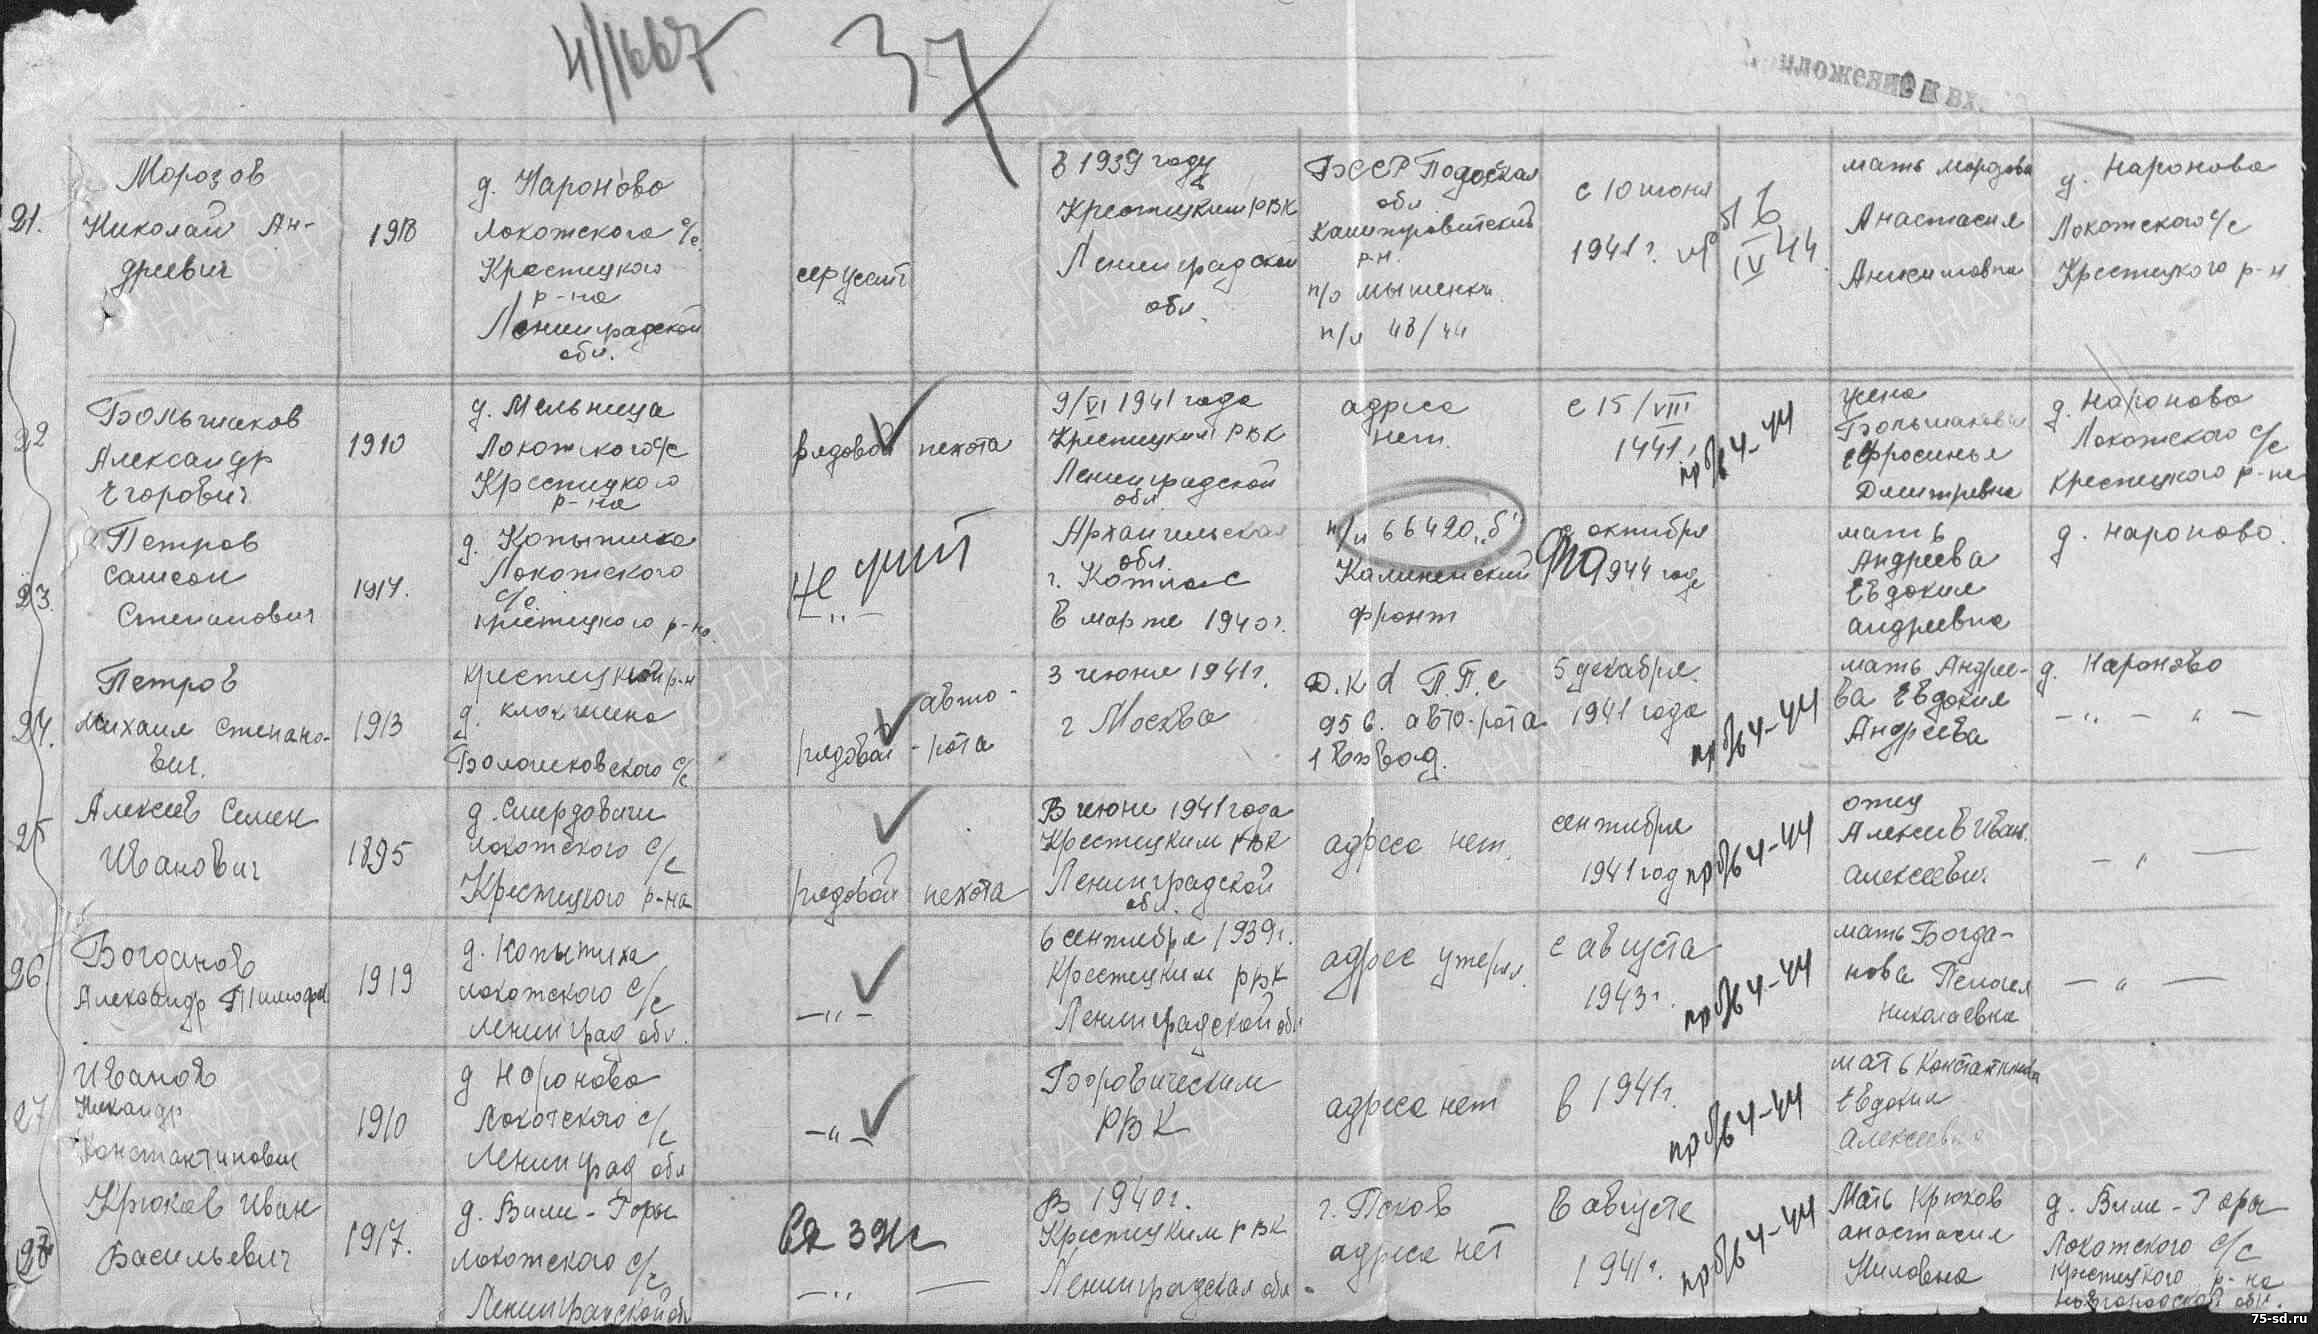 4/1667
37
Приложение к вх.
21.
Морозов
Николай Ан-
дреевич
1918
д. Нароново
Локотского с/с
Крестецкого
р-на
Ленинградской
обл.
сержант
в 1939 году
Крестецким РВК
Ленинградской
обл.
БССР
обл
р-н.
п/о мышенки
п/я 48/44
с 10 июня
1941 г.
IV 44
мать Морозова
Анастасия
д. Нароново
Локотского с/с
Крестецкого р-н
22
Большаков
Александр
Егорович
1910
д. Мельница
Локотского с/с
Крестецкого
р-на
рядовой
пехота
9/VI 1941 года
Крестецким РВК
Ленинградской
обл
адреса
нет.
с 15/VIII
1441 г.
пр б/в 4-44
жена
Большакова
Ефросинья
Дмитревна
д. Нароново
Локотского с/с
Крестецкого р-на
23.
Петров
Самсон
Степанович
1914.
д. Копытиха
Локотского
с/с
крестецкого р-на
Не учит
—„—
Архангельская
обл.
г. Котлас
в марте 1940 г.
п/п 66420 „б"
Калиненский
фронт
с октября
1944 года
мать
Андреева
Евдокия
андреевна
д. Нароново.
24.
Петров
Михаил Степано-
вич.
1913
крестецкий р-н
д.
с/с
рядовой
авто-
рота
3 июня 1941 г.
г Москва
Д.К.А П.П.С
95 в. авто-рота
1 взвод.
5 декабря
1941 года
пр б/в 4-44
мать Андрее-
ва Евдокия
Андреева
д. Нароново
—„— „ —
25
Алексеев Семен
Иванович
1895
д. Смердовичи
Локотского с/с
Крестецкого р-на
рядовой
пехота
В июне 1941 года
Крестецким РВК
Ленинградской
обл.
адреса нет.
сентября
1941 год
пр б/в 4-44
отец
Алексеев Иван
Алексеевич
— „ —
26
Богданов
Александр Тимофе
1919
д. Копытиха
Локотского с/с
Ленинград обл.
—„—
6 сентября 1939 г.
Крестецким РВК
Ленинградской обл
адрес утерян
с августа
1943 г.
пр б/в 4-44
мать Богда-
нова Пелагея
Николаевна
— „ —
27
Иванов
Никандр
Константинович
1910
д Нороново
Локотского с/с
Ленинград обл
—„—
Боровическим
РВК
адреса нет
в 1941 г.
пр б/в 4-44
мать Константинова
Евдокия
Алексеевна
28
Крюков Иван
Васильевич
1917.
д. Вили-Горы
Локотского с/с
Ленинградской об
—„— —
В 1940 г.
Крестецким РВК
Ленинградская обл.
г. Псков
адреса нет
в августе
1941 г.
пр б/в 4-44
Мать Крюков
анастасия
Ниловна
д. Вили-Горы
Локотского с/с
крестецкого р-на
новгородской обл.
75-sd.ru